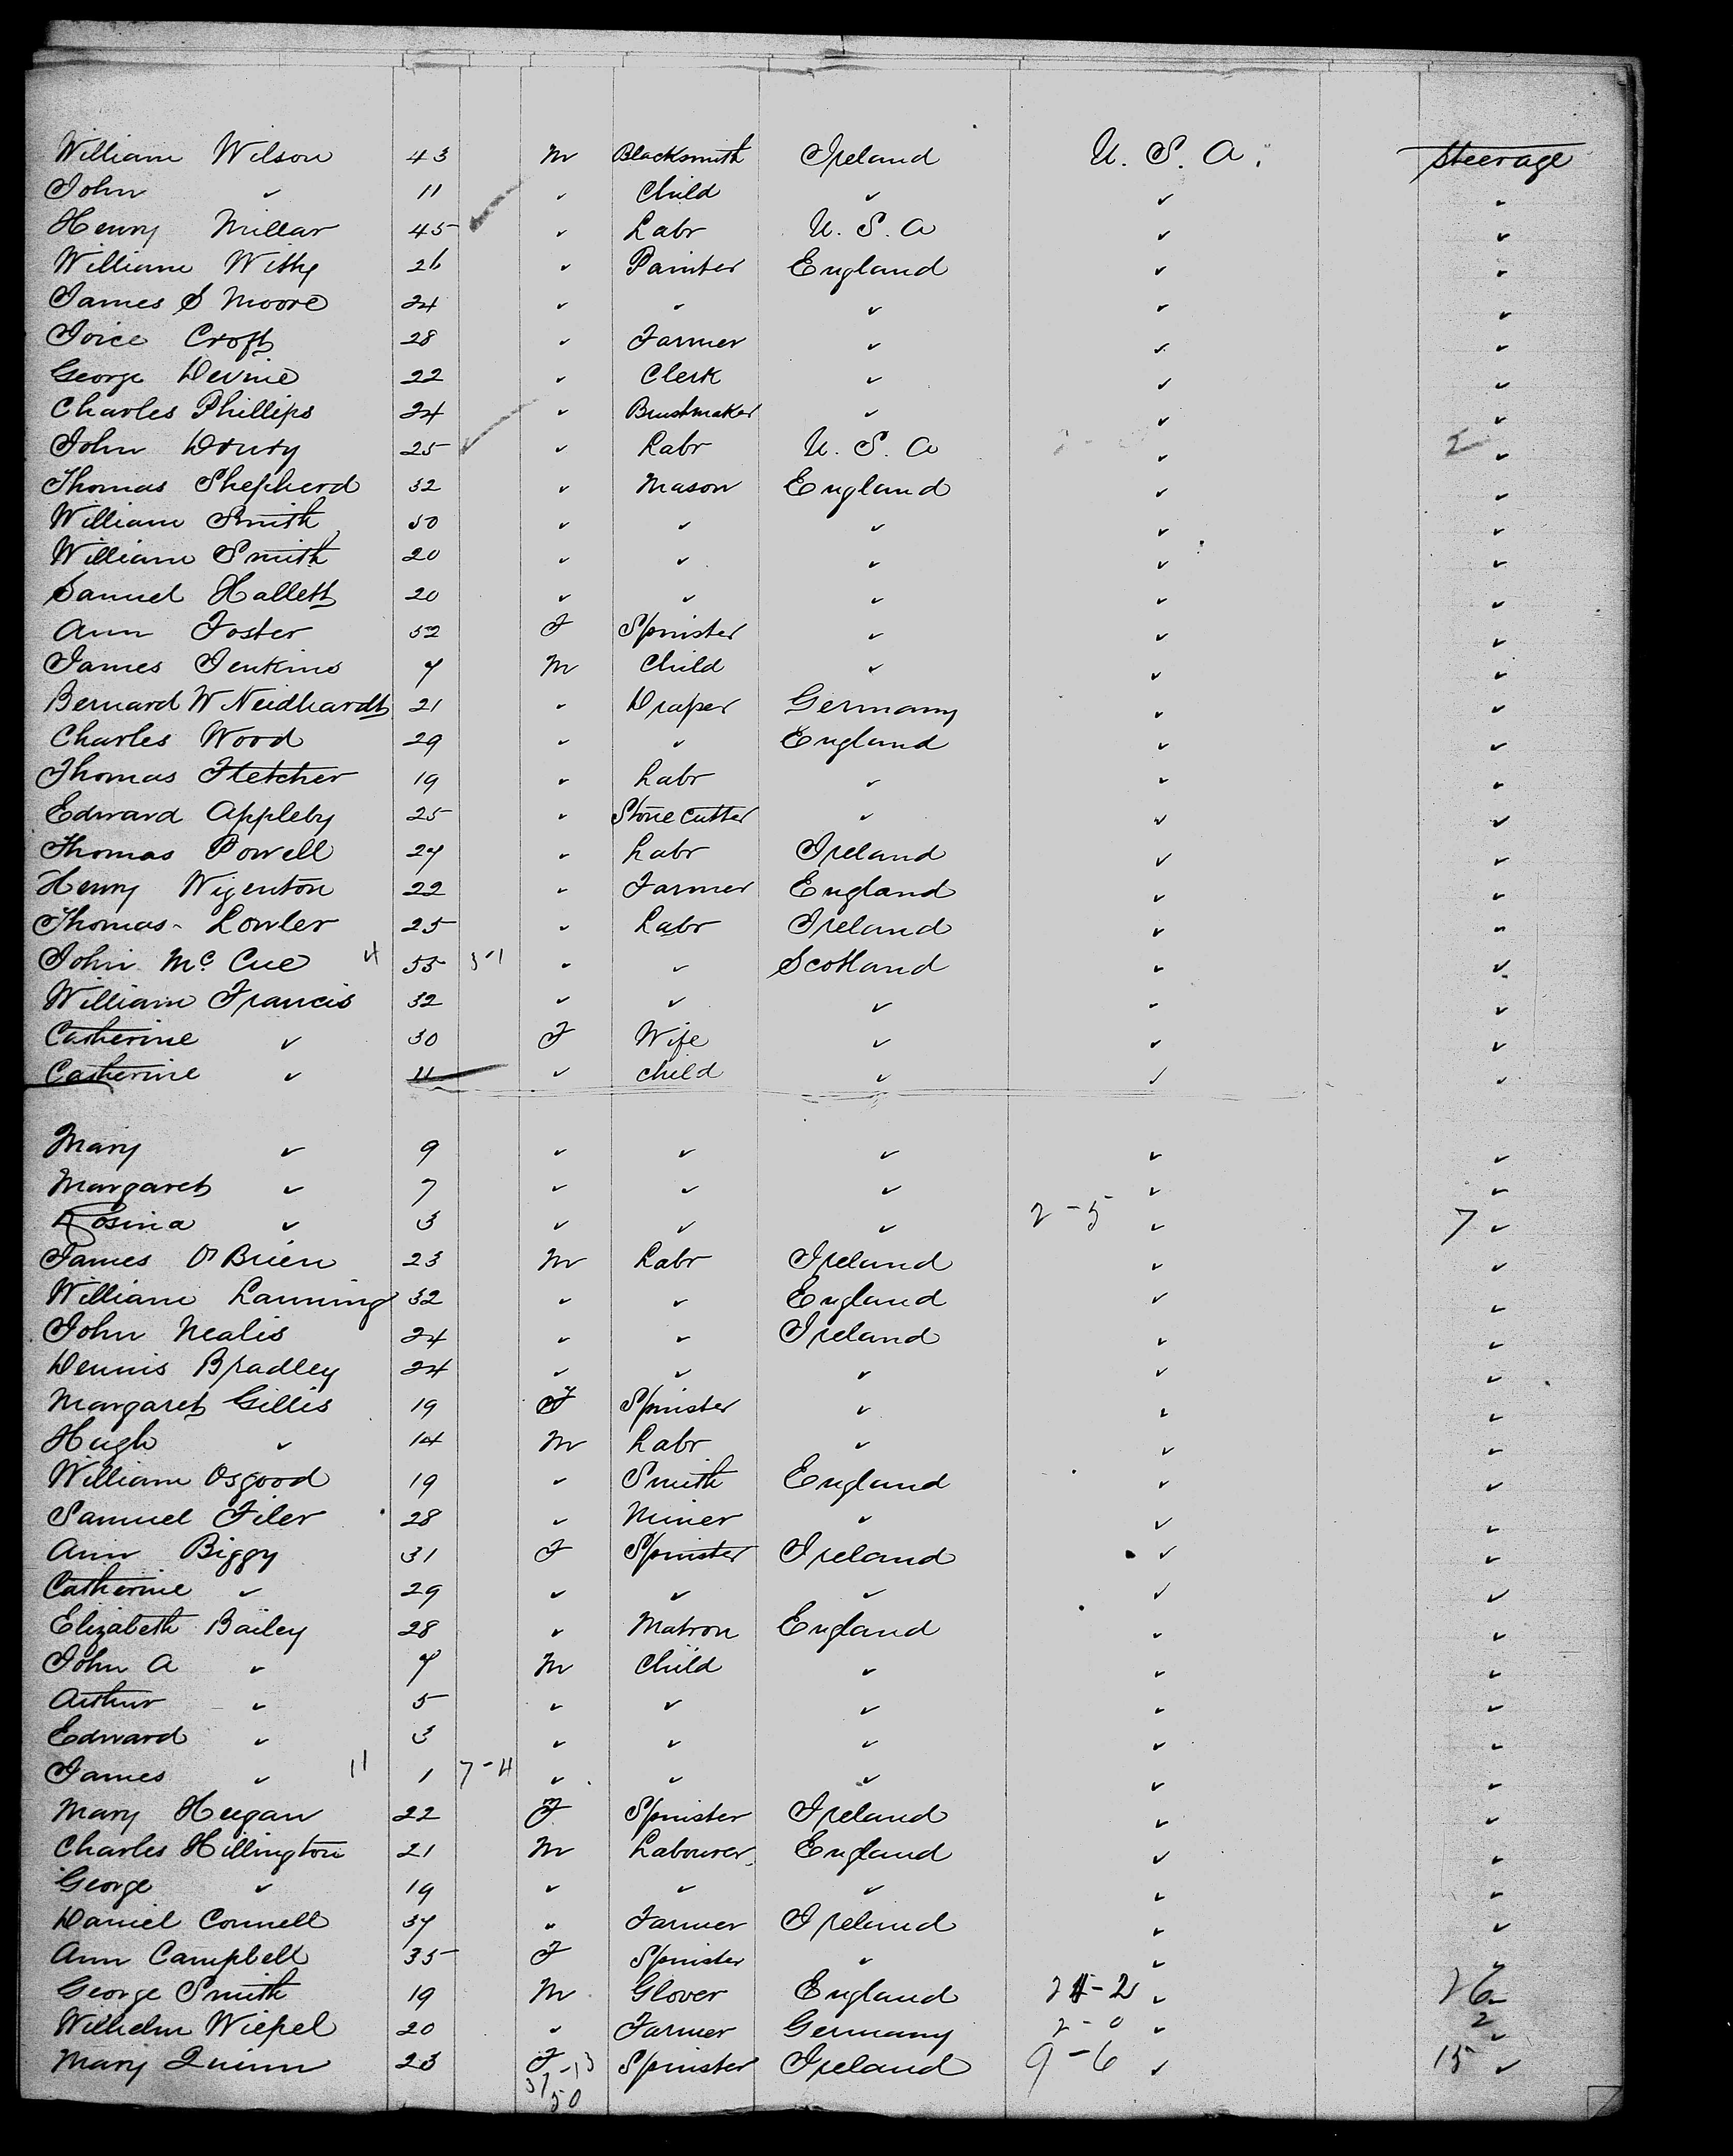 William Wilson 43 M Blacksmith Ireland U. S. A. Steerage
John " 11 " Child " " "
Henry Millar 45 " Labr U. S. A " "
William Withy 26 " Painter England " "
James S Moore 24 " " " " "
Joice Croft 28 " Farmer " " "
George Devine 22 " Clerk " " "
Charles Phillips 24 " Brushmaker " " "
John Doury 25 " Labr U. S. A " 2 "
Thomas Shepherd 32 " Mason England " "
William Smith 50 " " " " "
William Smith 20 " " " " "
Samuel Hallett 20 " " " " "
Ann Foster 52 F Spinster " " "
James Jenkins 7 M Child " " "
Bernard W Neidhardt 21 " Draper Germany " "
Charles Wood 29 " " England " "
Thomas Fletcher 19 " Labr " " "
Edward Appleby 25 " Stone Cutter " " "
Thomas Powell 27 " Labr Ireland " "
Henry Wigenton 22 " Farmer England " "
Thomas Lowler 25 " Labr Ireland " "
John McCue 4 55 5-1 " " Scotland " "
William Francis 32 " " " " "
Catherine " 30 F Wife " " "
Catherine " 11 " child " " "
Mary " 9 " " " " "
Margaret " 7 " " " " "
Rosina " 3 " " " 2-5 " 7 "
James O'Brien 23 M Labr Ireland " "
William Lanning 32 " " England " "
John Nealis 24 " " Ireland " "
Dennis Bradley 24 " " " " "
Margaret Gillis 19 F Spinster " " "
Hugh " 14 M Labr " " "
William Osgood 19 " Smith England " "
Samuel Filer 28 " Miner " " "
Ann Biggy 31 F Spinster Ireland " "
Catherine " 29 " " " " "
Elizabeth Bailey 28 " Matron England " "
John A " 7 M Child " " "
Arthur " 5 " " " " "
Edward " 3 " " " " "
James " 11 1 7-4 " " " " "
Mary Hegan 22 F Spinster Ireland " "
Charles Hillington 21 M Labourer England " "
George " 19 " " " " "
Daniel Connell 37 " Farmer Ireland " "
Ann Campbell 35 F Spinster " " "
George Smith 19 M Glover England " 26 "
Wilhelm Wiepel 20 " Farmer Germany 2-0 " 2 "
Mary Quinn 23 F Spinster Ireland 9-6 " 15 "
37-13
50